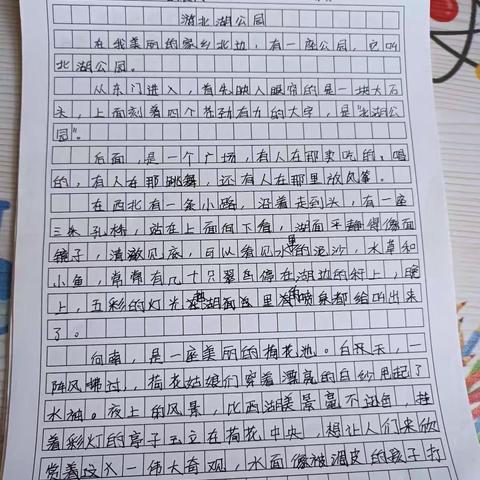 游北湖公园
在我美丽的家乡北边,有一座公园,它叫
北湖公园。
从东门进入,首先映入眼帘的是一块大石
头,上面刻着四个苍劲有力的大字,是"北湖公
园"。
后面,是一个广场,有人在那卖吃的、唱
的,有人在那跳舞,还有人在那里放风筝。
在西北有一条小路,沿着走到头,有一座
三十孔桥,站在上面向下看,湖面平静得像面
镜子,清澈见底,可以看见水里的泥沙,水草和
小鱼,常常有几十只翠鸟停在湖边的树上,晚
上,五彩的灯光湖面里喷泉都给叫出来
了。
向南,是一座美丽的荷花池。白天,一
阵风拂过,荷花姑娘们穿着漂亮的白纱甩起了
水袖。夜上的风景,比西湖美景毫不逊色,挂
着彩灯的亭子立在荷花中央,想让人们来欣
赏着这一伟大奇观,水面像被调皮的孩子打